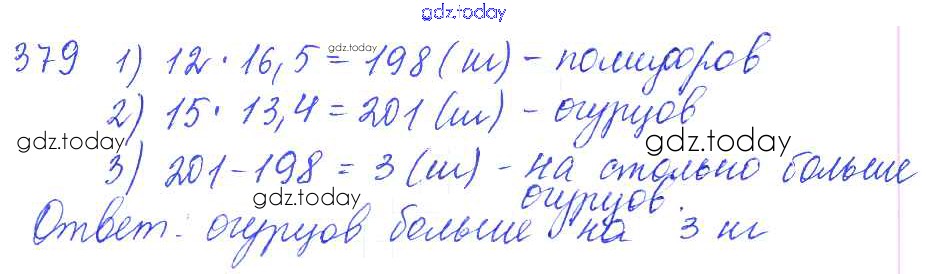 gdz.today
379 1) 12 · 16,5 = 198 (кг) - помидоров
gdz.today
2) 15 · 13,4 = 201 (кг) - огурцов
gdz.today
gdz.today
3) 201 - 198 = 3 (кг) - на столько больше
gdz.today
огурцов.
Ответ: огурцов больше на 3 кг
gdz.today